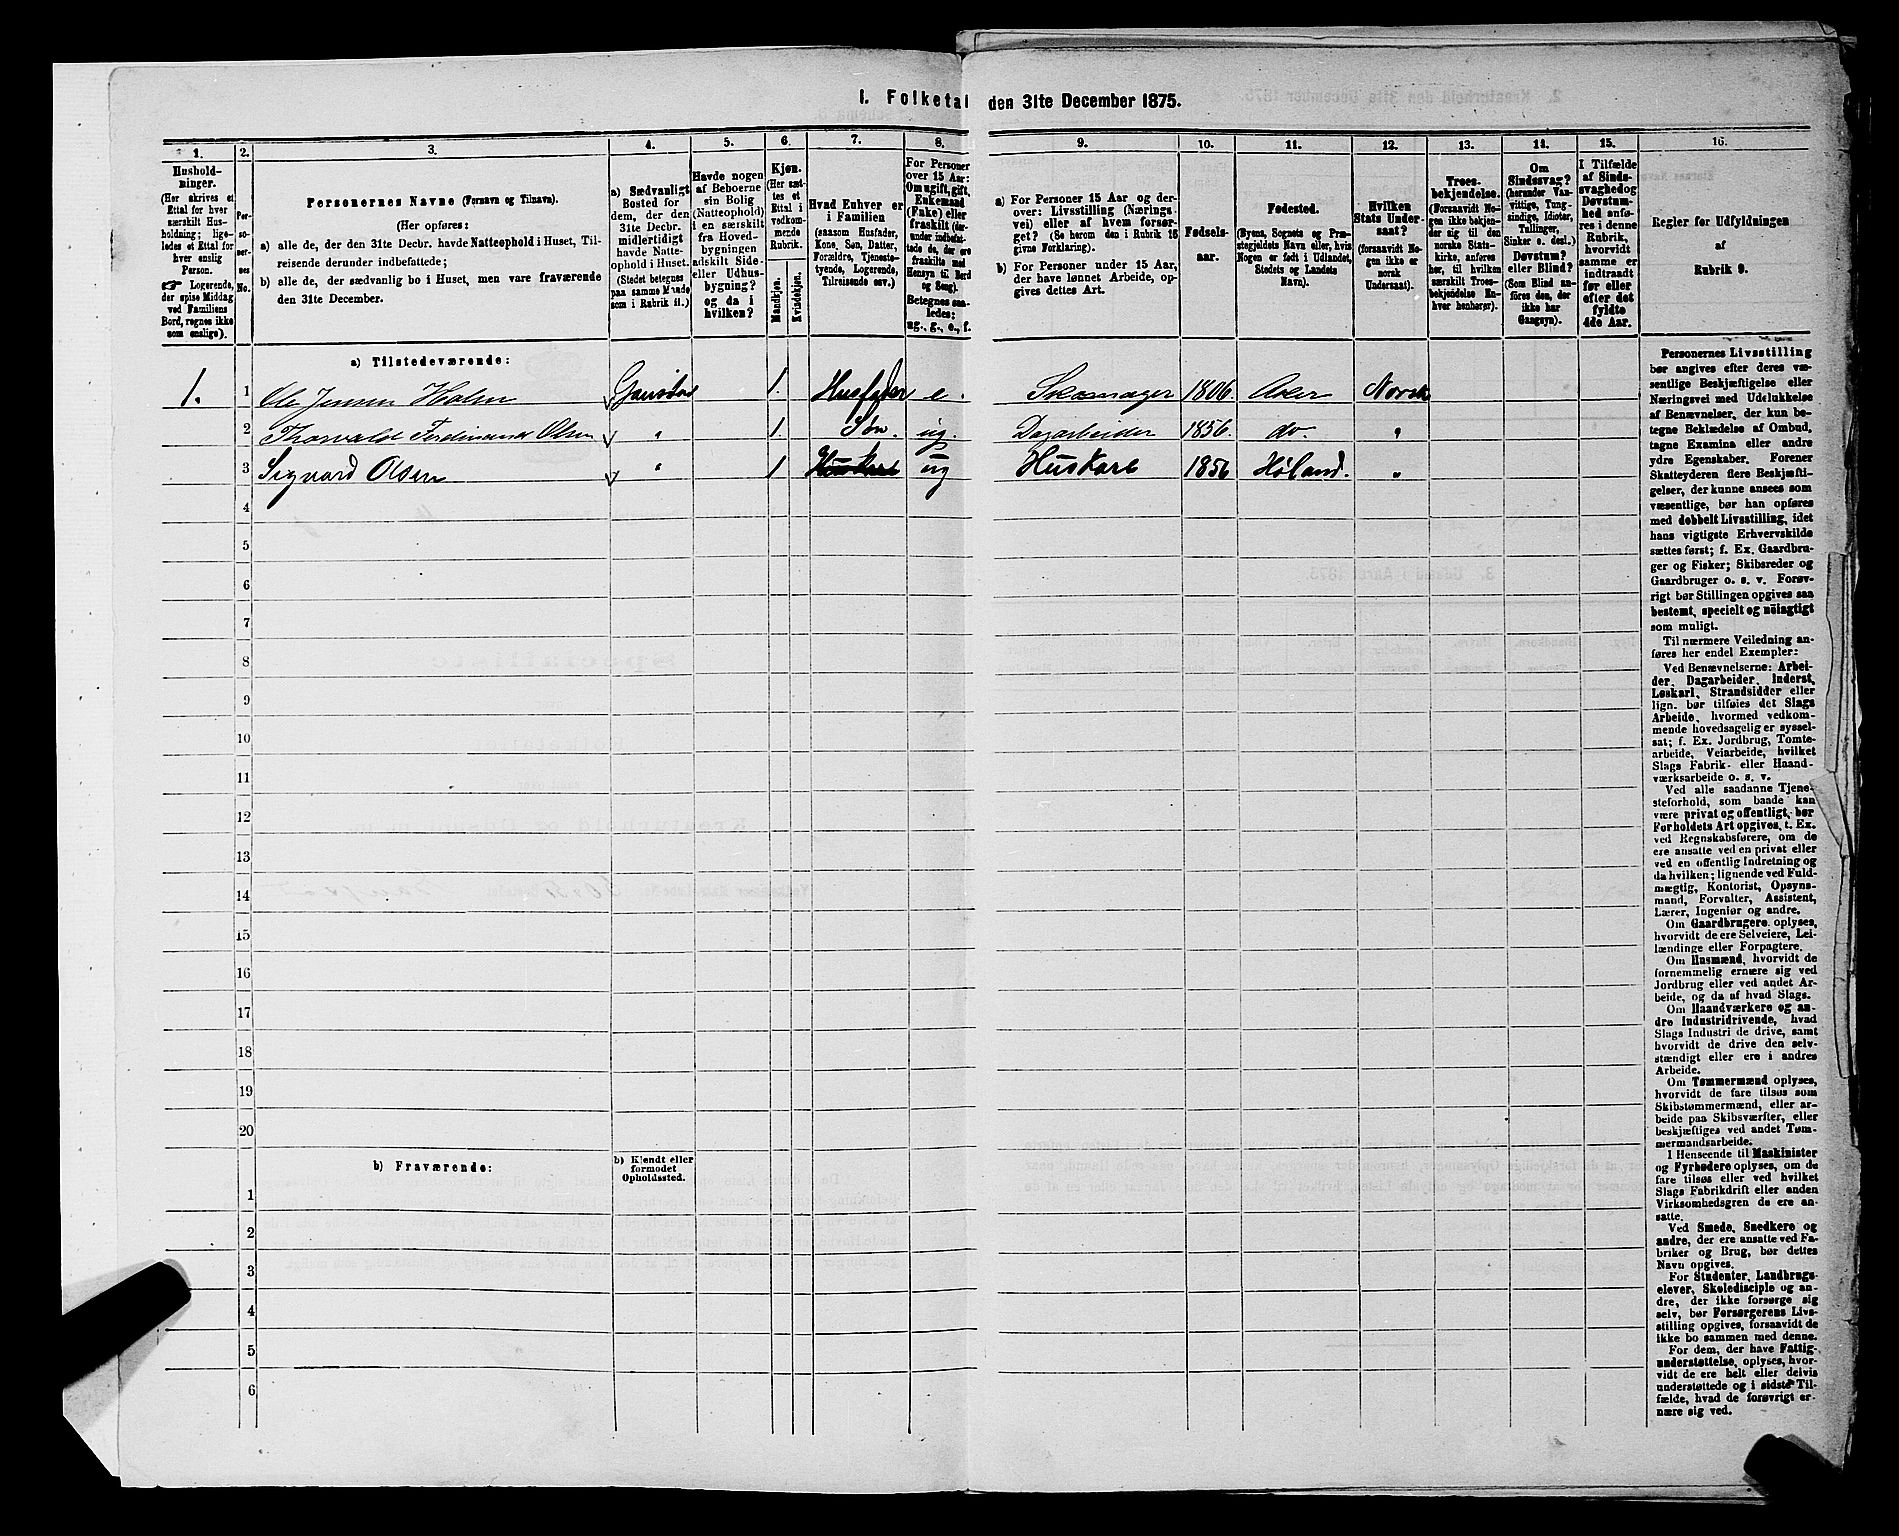 I. Folketal den 31te December 1875.
1. 2. 3. 4. 5. 6. 7. 8. 9. 10. 11. 12. 13. 14. 15. 16.
Hushold-
ninger.
(Her skrives et
Ettal for hver
særskilt Hus-
holdning; lige-
ledes et Ettal for
hver enslig
Person.
Logerende,
der spise Middag
ved Familiens
Bord, regnes ikke
som enslige).
Per-
so-
ner-
nes
No.
Personernes Navne (Fornavn og Tilnavn).
(Her opføres:
a) alle de, der den 31te Decbr. havde Natteophold i Huset, Til-
reisende derunder indbefattede;
b) alle de, der sædvanlig bo i Huset, men vare fraværende
den 31te December.
a) Sædvanligt
Bosted for
dem, der den
31te Decbr.
midlertidigt
havde Natte-
ophold i Huset.
(Stedet betegnes
paa samme Maade
som i Rubrik 11.)
Havde nogen
af Beboerne
sin Bolig
(Natteophold)
i en særskilt
fra Hoved-
bygningen
adskilt Side-
eller Udhus-
bygning?
og da i
hvilken?
Kjøn.
(Her sæt-
tes et
Ettal i
vedkom-
mende
Rubrik.
Mandkjøn.
Kvindekjøn.
Hvad Enhver er
i Familien
(saasom Husfader,
Kone, Søn, Datter,
Forældre, Tjeneste-
tyende, Logerende,
Tilreisende osv.)
For Personer
over 15 Aar:
Om ugift, gift,
Enkemand
(Enke) eller
fraskilt (her-
under indbefat-
tede de, der ere
fraskilte med
Hensyn til Bord
og Seng).
Betegnes saa-
ledes:
ug., g., e., f.
a) For Personer 15 Aar og der-
over: Livsstilling (Nærings-
vei) eller af hvem forsør-
get? (Se herom den i Rubrik 16
givne Forklaring).
b) For Personer under 15 Aar,
der have lønnet Arbeide, op-
gives dettes Art.
Fødsels-
aar.
Fødested.
(Byens, Sognets og Præ-
stegjeldets Navn eller, hvis
Nogen er født i Udlandet,
Stedets og Landets
Navn).
Hvilken
Stats Under-
saat?
(forsaavidt No-
gen ikke er
norsk
Undersaat).
Troes-
bekjendelse.
(Forsaavidt No-
gen ikke bekjen-
der sig til den
norske Stats-
kirke, anføres
her, til hvilken
særskilt Troes-
bekjendelse En-
hver henhører).
Om
Sindssvag?
(herunder Van-
vittige, Tung-
sindige, Idioter,
Tullinger,
Sinker o. desl.)
Døvstum?
eller Blind?
(Som Blind an-
føres den, der
ikke har
Gangsyn).
I Tilfælde
af Sinds-
svaghed og
Døvstum-
hed anfø-
res i denne
Rubrik,
hvorvidt
samme er
indtraadt
før eller
efter det
fyldte
4de Aar.
Regler for Udfyldningen
af
Rubrik 9.
a) Tilstedeværende:
1. 1 Ole Jensen Holm Gaustad 1. Husfader e. Skomager 1806. Asker Norsk
2 Thorvald Ferdinand Olsen " 1. Søn. ug. Dagarbeider 1856. do. "
3 Sigvard Olsen " 1 Huskarl ug Huskarl 1856 Høland. "
4
5
6
7
8
9
10
11
12
13
14
15
16
17
18
19
20
b) Fraværende:
b) Kjendt eller
formodet
Opholdssted.
1
2
3
4
5
6
Personernes Livsstilling
bør angives efter deres væ-
sentlige Beskjæftigelse eller
Næringsvei med Udelukkelse
af Benævnelser, der kun be-
tegne Beklædelse af Ombud,
tagne Examina eller andre
ydre Egenskaber. Forener
Skatteyderen flere Beskjæfti-
gelser, der kunne ansees som
væsentlige, bør han opføres
med dobbelt Livsstilling, idet
hans vigtigste Erhvervskilde
sættes først; f. Ex. Gaardbru-
ger og Fisker; Skibsreder og
Gaardbruger o. s. v. Forøv-
rigt bør Stillingen opgives saa
bestemt, specielt og nöiagtigt
som muligt.
Til nærmere Veiledning an-
føres her endel Exempler:
Ved Benævnelserne: Arbei-
der, Dagarbeider, Inderst,
Løskarl, Strandsidder eller
lign. bør tilføies det Slags
Arbeide, hvormed vedkom-
mende hovedsagelig er syssel-
sat; f. Ex. Jordbrug, Tomte-
arbeide, Veiarbeide, hvilket
Slags Fabrik- eller Haand-
værksarbeide o. s. v.
Ved alle saadanne Tjene-
steforhold, som baade kan
være privat og offentligt, bør
Forholdets Art opgives, t. Ex.
ved Regnskabsførere, om de
ere ansatte ved en privat eller
ved en offentlig Indretning og
da hvilken; lignende ved Fuld-
mægtig, Kontorist, Opsyns-
mand, Forvalter, Assistent,
Lærer, Ingeniør og andre.
Om Gaardbrugere oplyses,
hvorvidt de ere Selveiere, Lei-
lændinge eller Forpagtere.
Om Husmænd, hvorvidt de
fornemmelig ernære sig ved
Jordbrug eller ved andet Ar-
beide, og da af hvad Slags.
Om Haandværkere og an-
dre Industridrivende, hvad
Slags Industri de drive, samt
hvorvidt de drive den selv-
stændigt eller ere i andres
Arbeide.
Om Tømmermænd oplyses,
hvorvidt de fare tilsøs som
Skibstømmermænd, eller ar-
beide paa Skibsværfter, eller
beskjæftiges ved andet Tøm-
mermandsarbeide.
I Henseende til Maskinister
og Fyrbødere oplyses, om de
fare tilsøs eller ved hvilket
Slags Fabrikdrift eller anden
Virksomhedsgren de ere an-
satte.
Ved Smede, Snedkere og
andre, der ere ansatte ved Fa-
briker og Brug, bør dettes
Navn opgives.
For Studenter, Landbrugs-
elever, Skoledisciple og an-
dre, der ikke forsørge sig
selv, bør Forsørgerens Livs-
stilling opgives, forsaavidt de
ikke bo sammen med denne.
For dem, der have Fattig-
understøttelse, oplyses, hvor-
vidt de ere helt eller delvis
understøttede og i sidste Til-
fælde, hvad de forøvrigt er-
nære sig ved.